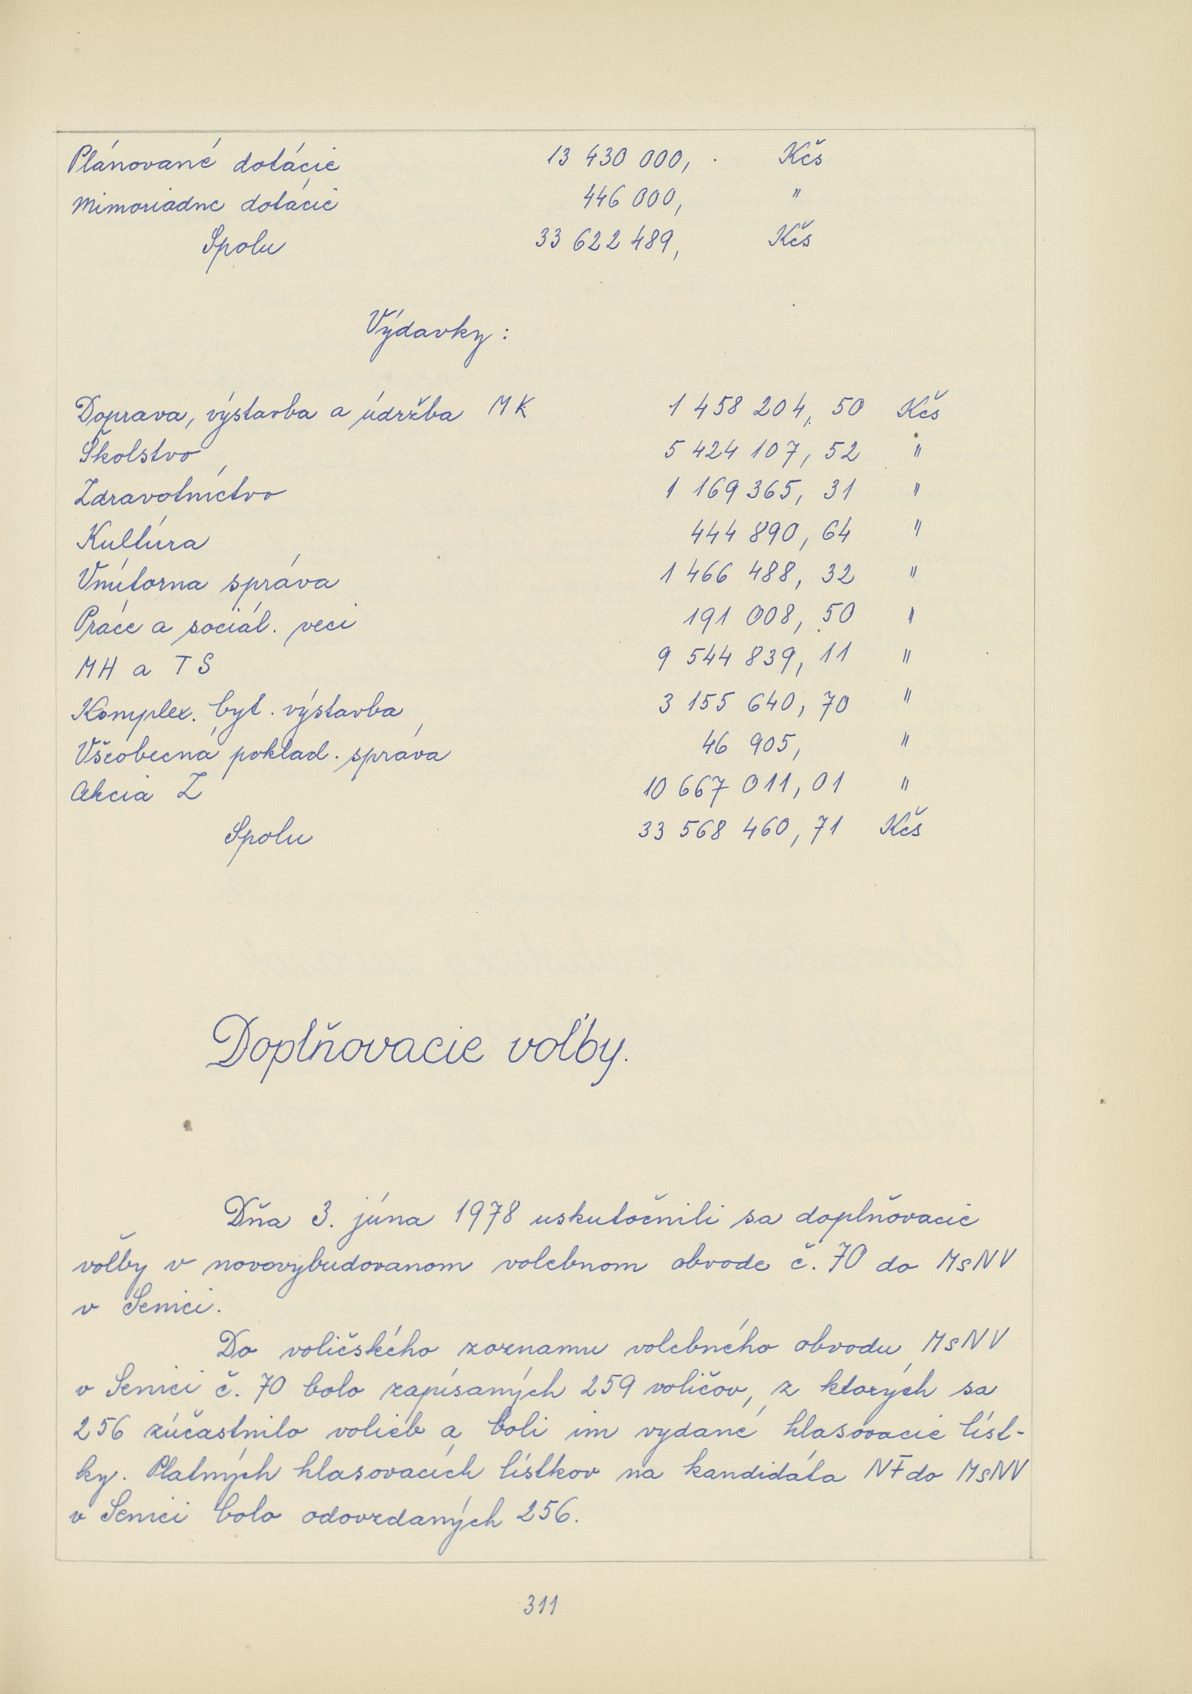 Plánované dotácie 13 430 000, Kčs
Mimoriadne dotácie 446 000, "
Spolu 33 622 489, Kčs
Výdavky :
Doprava, výstavba a údržba MK 1 458 204, 50 Kčs
Školstvo 5 424 107, 52 "
Zdravotníctvo 1 169 365, 31 "
Kultúra 444 890, 64 "
Vnútorna správa 1 466 488, 32 "
Práce a sociál. veci 191 008, 50 "
MH a TS 9 544 839, 11 "
Komplex. byt. výstavba 3 155 640, 70 "
Všeobecná poklad. správa 46 905, "
Akcia Z 10 667 011, 01 "
Spolu 33 568 460, 71 Kčs
Doplňovacie voľby.
Dňa 3. júna 1978 uskutočnili sa doplňovacie
voľby v novovybudovanom volebnom obvode č. 70 do MsNV
v Senici.
Do voličského zoznamu volebného obvodu MsNV
v Senici č. 70 bolo zapísaných 259 voličov, z ktorých sa
256 zúčastnilo volieb a boli im vydané hlasovacie líst-
ky. Platných hlasovacích lístkov na kandidáta NF do MsNV
v Senici bolo odovzdaných 256.
311